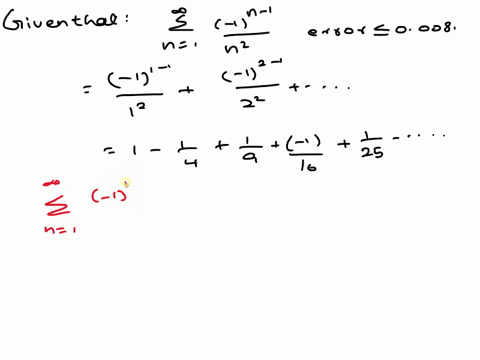 Giventhat: ∞∑n=1 (-1)^(n-1)/n² error ≤ 0.008.
= (-1)^(1-1)/1² + (-1)^(2-1)/2² + ....
= 1 - 1/4 + 1/9 + (-1)/16 + 1/25 - ....
∞∑n=1 (-1)